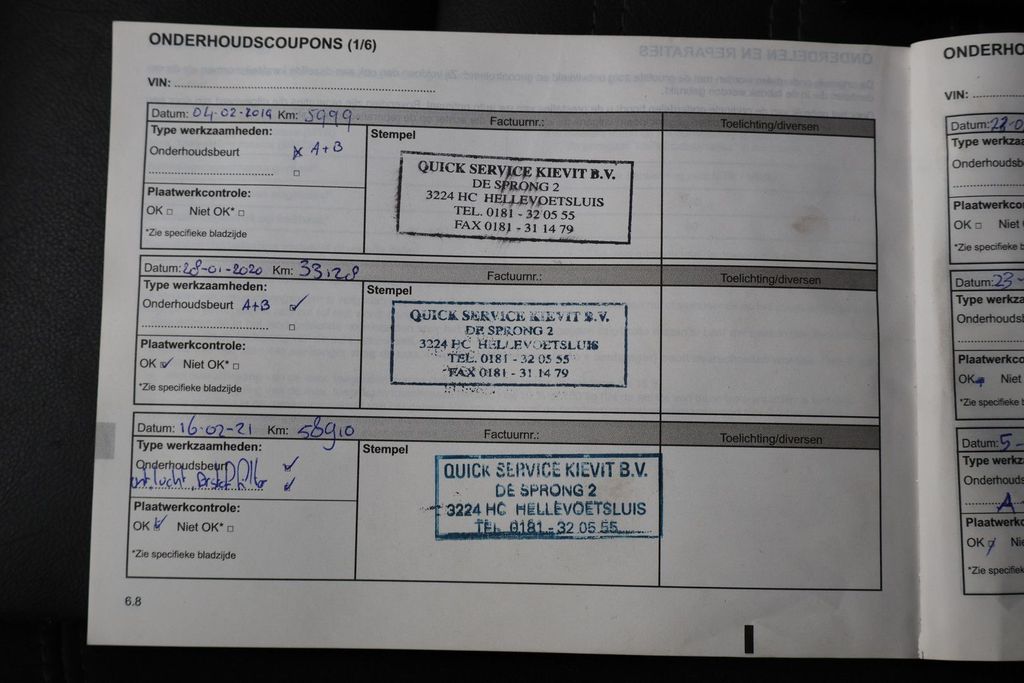 ONDERHOUDSCOUPONS (1/6)
VIN:
Datum: 04-02-2019 Km: 5999. Factuurnr.: Toelichting/diversen
Type werkzaamheden: Stempel
Onderhoudsbeurt A+B
Plaatwerkcontrole:
OK Niet OK*
*Zie specifieke bladzijde
QUICK SERVICE KIEVIT B.V.
DE SPRONG 2
3224 HC HELLEVOETSLUIS
TEL. 0181 - 32 05 55
FAX 0181 - 31 14 79
Datum: 28-01-2020 Km: 33.128 Factuurnr.: Toelichting/diversen
Type werkzaamheden: Stempel
Onderhoudsbeurt A+B
Plaatwerkcontrole:
OK Niet OK*
*Zie specifieke bladzijde
QUICK SERVICE KIEVIT B.V.
DE SPRONG 2
3224 HC HELLEVOETSLUIS
TEL. 0181 - 32 05 55
FAX 0181 - 31 14 79
Datum: 16-02-21 Km: 58910 Factuurnr.: Toelichting/diversen
Type werkzaamheden: Stempel
Onderhoudsbeurt
Plaatwerkcontrole:
OK Niet OK*
*Zie specifieke bladzijde
QUICK SERVICE KIEVIT B.V.
DE SPRONG 2
3224 HC HELLEVOETSLUIS
TEL. 0181 - 32 05 55
6.8
ONDERHO
VIN:
Datum:
Type werkza
Onderhoudsb
Plaatwerkco
OK Niet
*Zie specifieke b
Datum: 23-
Type werkza
Onderhouds
Plaatwerkco
OK Niet
*Zie specifieke
Datum: 5-
Type werkz
Onderhoud
A
Plaatwerk
OK Ni
*Zie specifiek